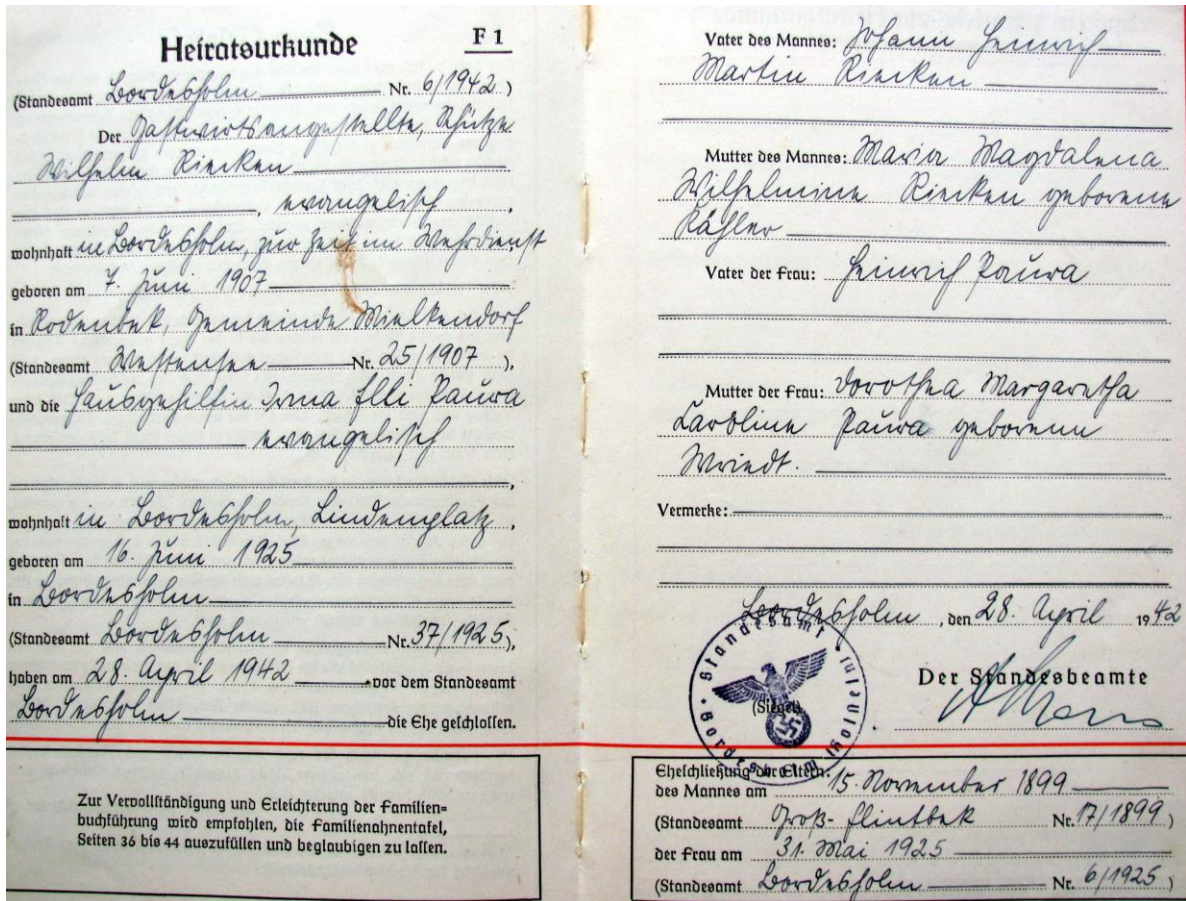 Heiratsurkunde F 1
(Standesamt Bordesholm Nr. 6/1942)
Der Gastwirtsangestellte, Schütze
Wilhelm Riecken
, evangelisch,
wohnhaft in Bordesholm, zur Zeit im Wehrdienst
geboren am 7. Juni 1907
in Rodenbek, Gemeinde Mielkendorf
(Standesamt Westensee Nr. 25/1907),
und die Hausgehilfin Irma Elli Paura
evangelisch
,
wohnhaft in Bordesholm, Lindenplatz,
geboren am 16. Juni 1925
in Bordesholm
(Standesamt Bordesholm Nr. 37/1925),
haben am 28. April 1942 vor dem Standesamt
Bordesholm die Ehe geschlossen.
Zur Vervollständigung und Erleichterung der Familien=
buchführung wird empfohlen, die Familienahnentafel,
Seiten 36 bis 44 auszufüllen und beglaubigen zu lassen.
Vater des Mannes: Johann Heinrich
Martin Riecken
Mutter des Mannes: Maria Magdalena
Wilhelmine Riecken geborene
Kähler
Vater der Frau: Heinrich Paura
Mutter der Frau: Dorothea Margaretha
Caroline Paura geborene
Wriedt.
Vermerke:
Bordesholm, den 28. April 1942
Standesamt Bordesholm
(Siegel)
Der Standesbeamte
Eheschließung der Eltern:
des Mannes am 15. November 1899
(Standesamt Groß-Flintbek Nr. 17/1899)
der Frau am 31. Mai 1925
(Standesamt Bordesholm Nr. 6/1925)